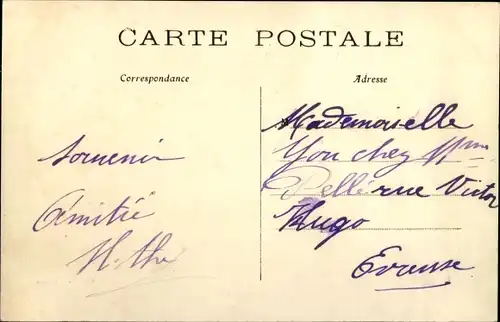 CARTE POSTALE
Correspondance
Adresse
Souvenir
Amitié
Mademoiselle
You chez Mme
Pellé rue Victor
Hugo
Evreux